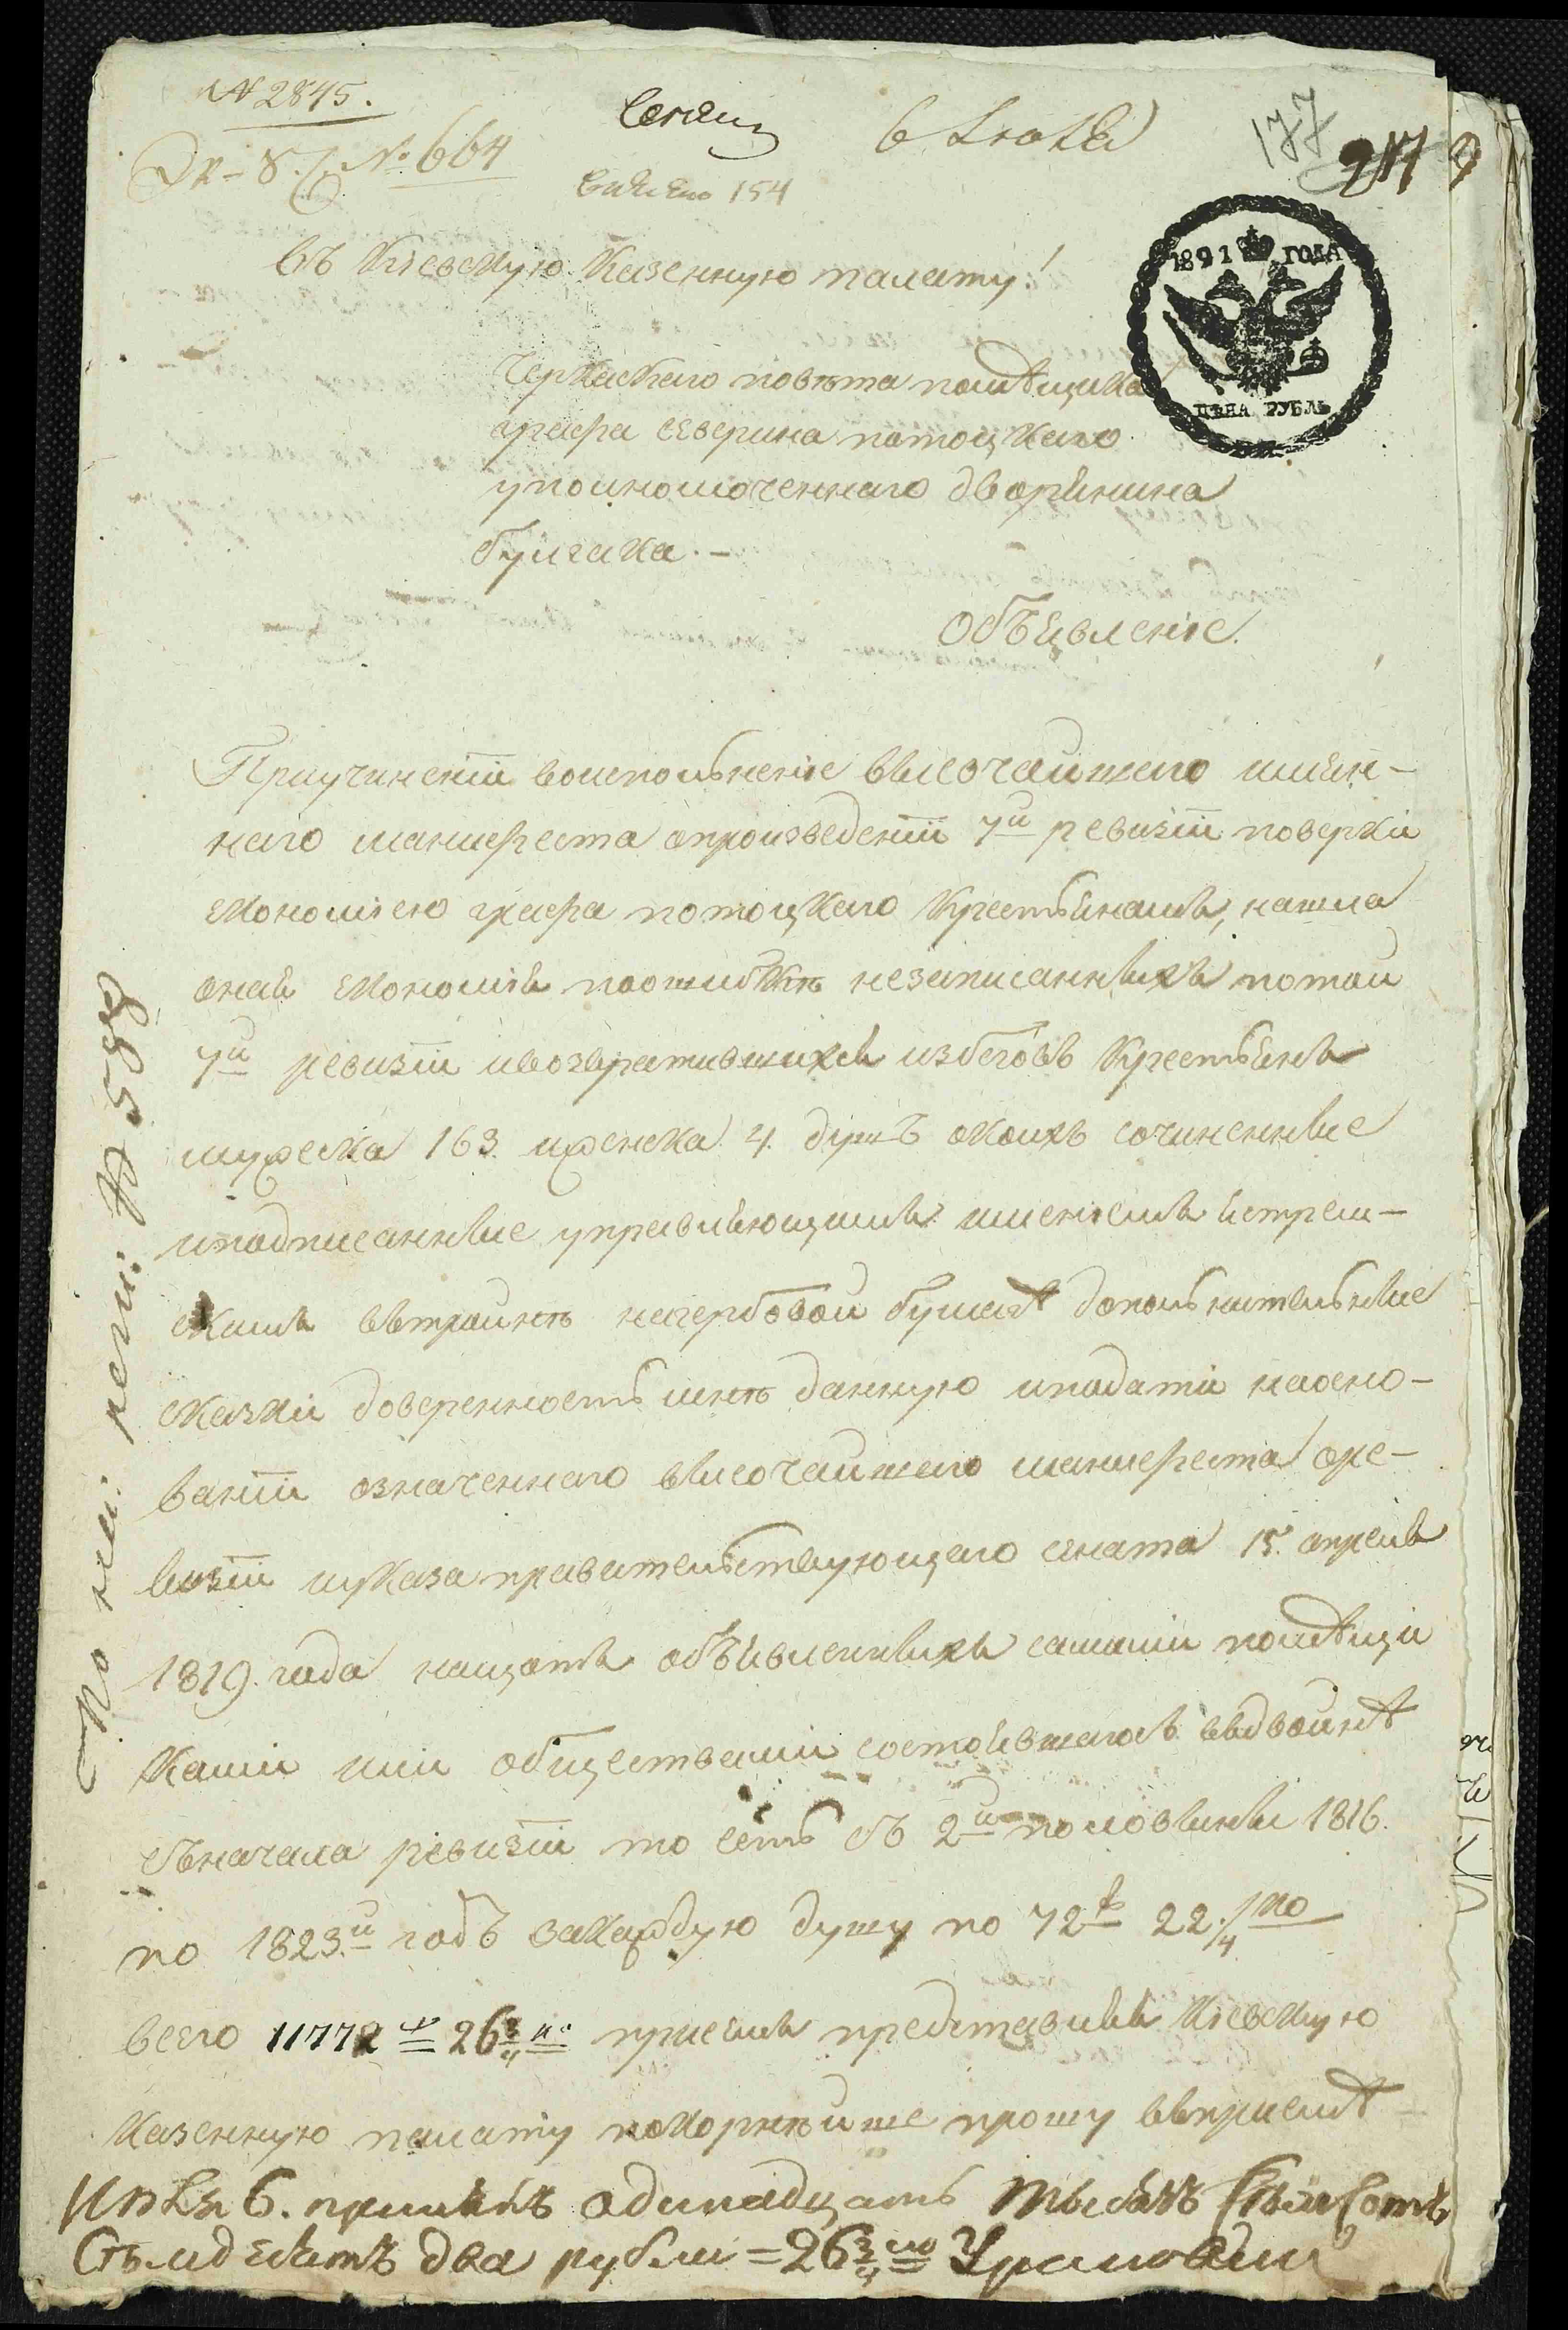 № 2845.
№ 664
6 Iюля
177
154
въ Кіевскую Казенную палату!
1821 ГОДА
ЦѢНА РУБЛЬ
Черкаскаго повѣта помѣщика
графа северина потоцкаго
уполномоченнаго дворянина
булгака. -
Объявленіе.
Приучиненіи воисполненіе высочайшаго имян-
наго манифеста опроизведеніи 7й ревизіи поверки
економіею графа потоцкаго крестьянамъ, нашла
оная економія поошибкѣ незаписанныхъ потой
7й ревизіи ивозвратившихся избеговъ крестьянъ
мужеска 163. иженска 4. душъ окоихъ сочиненные
иподписанные управляющимъ имениемъ
втройнѣ нагербовой бумагѣ дополнительные
сказки доверенность мнѣ данную иподати наосно-
ваніи означеннаго высочайшаго манифеста оре-
визіи иуказа правительствующаго сената 15. апреля
1819. года нащотъ объявленныхъ самими помѣщи
ками или обществами состоявшагося вдвойнѣ
сначала ревизіи то есть съ 2й половины 1816.
по 1823й годъ закаждую душу по 72 р 22 1/4 ко
всего 11772 р 26 3/4 ко присемъ представляя Кіевскую
казенную палату покорнейше прошу впріемѣ
Июля 6. принялъ одинадцать тысячь семь сотъ
семдесятъ два рубли = 26 3/4 ко
По реги: № 588